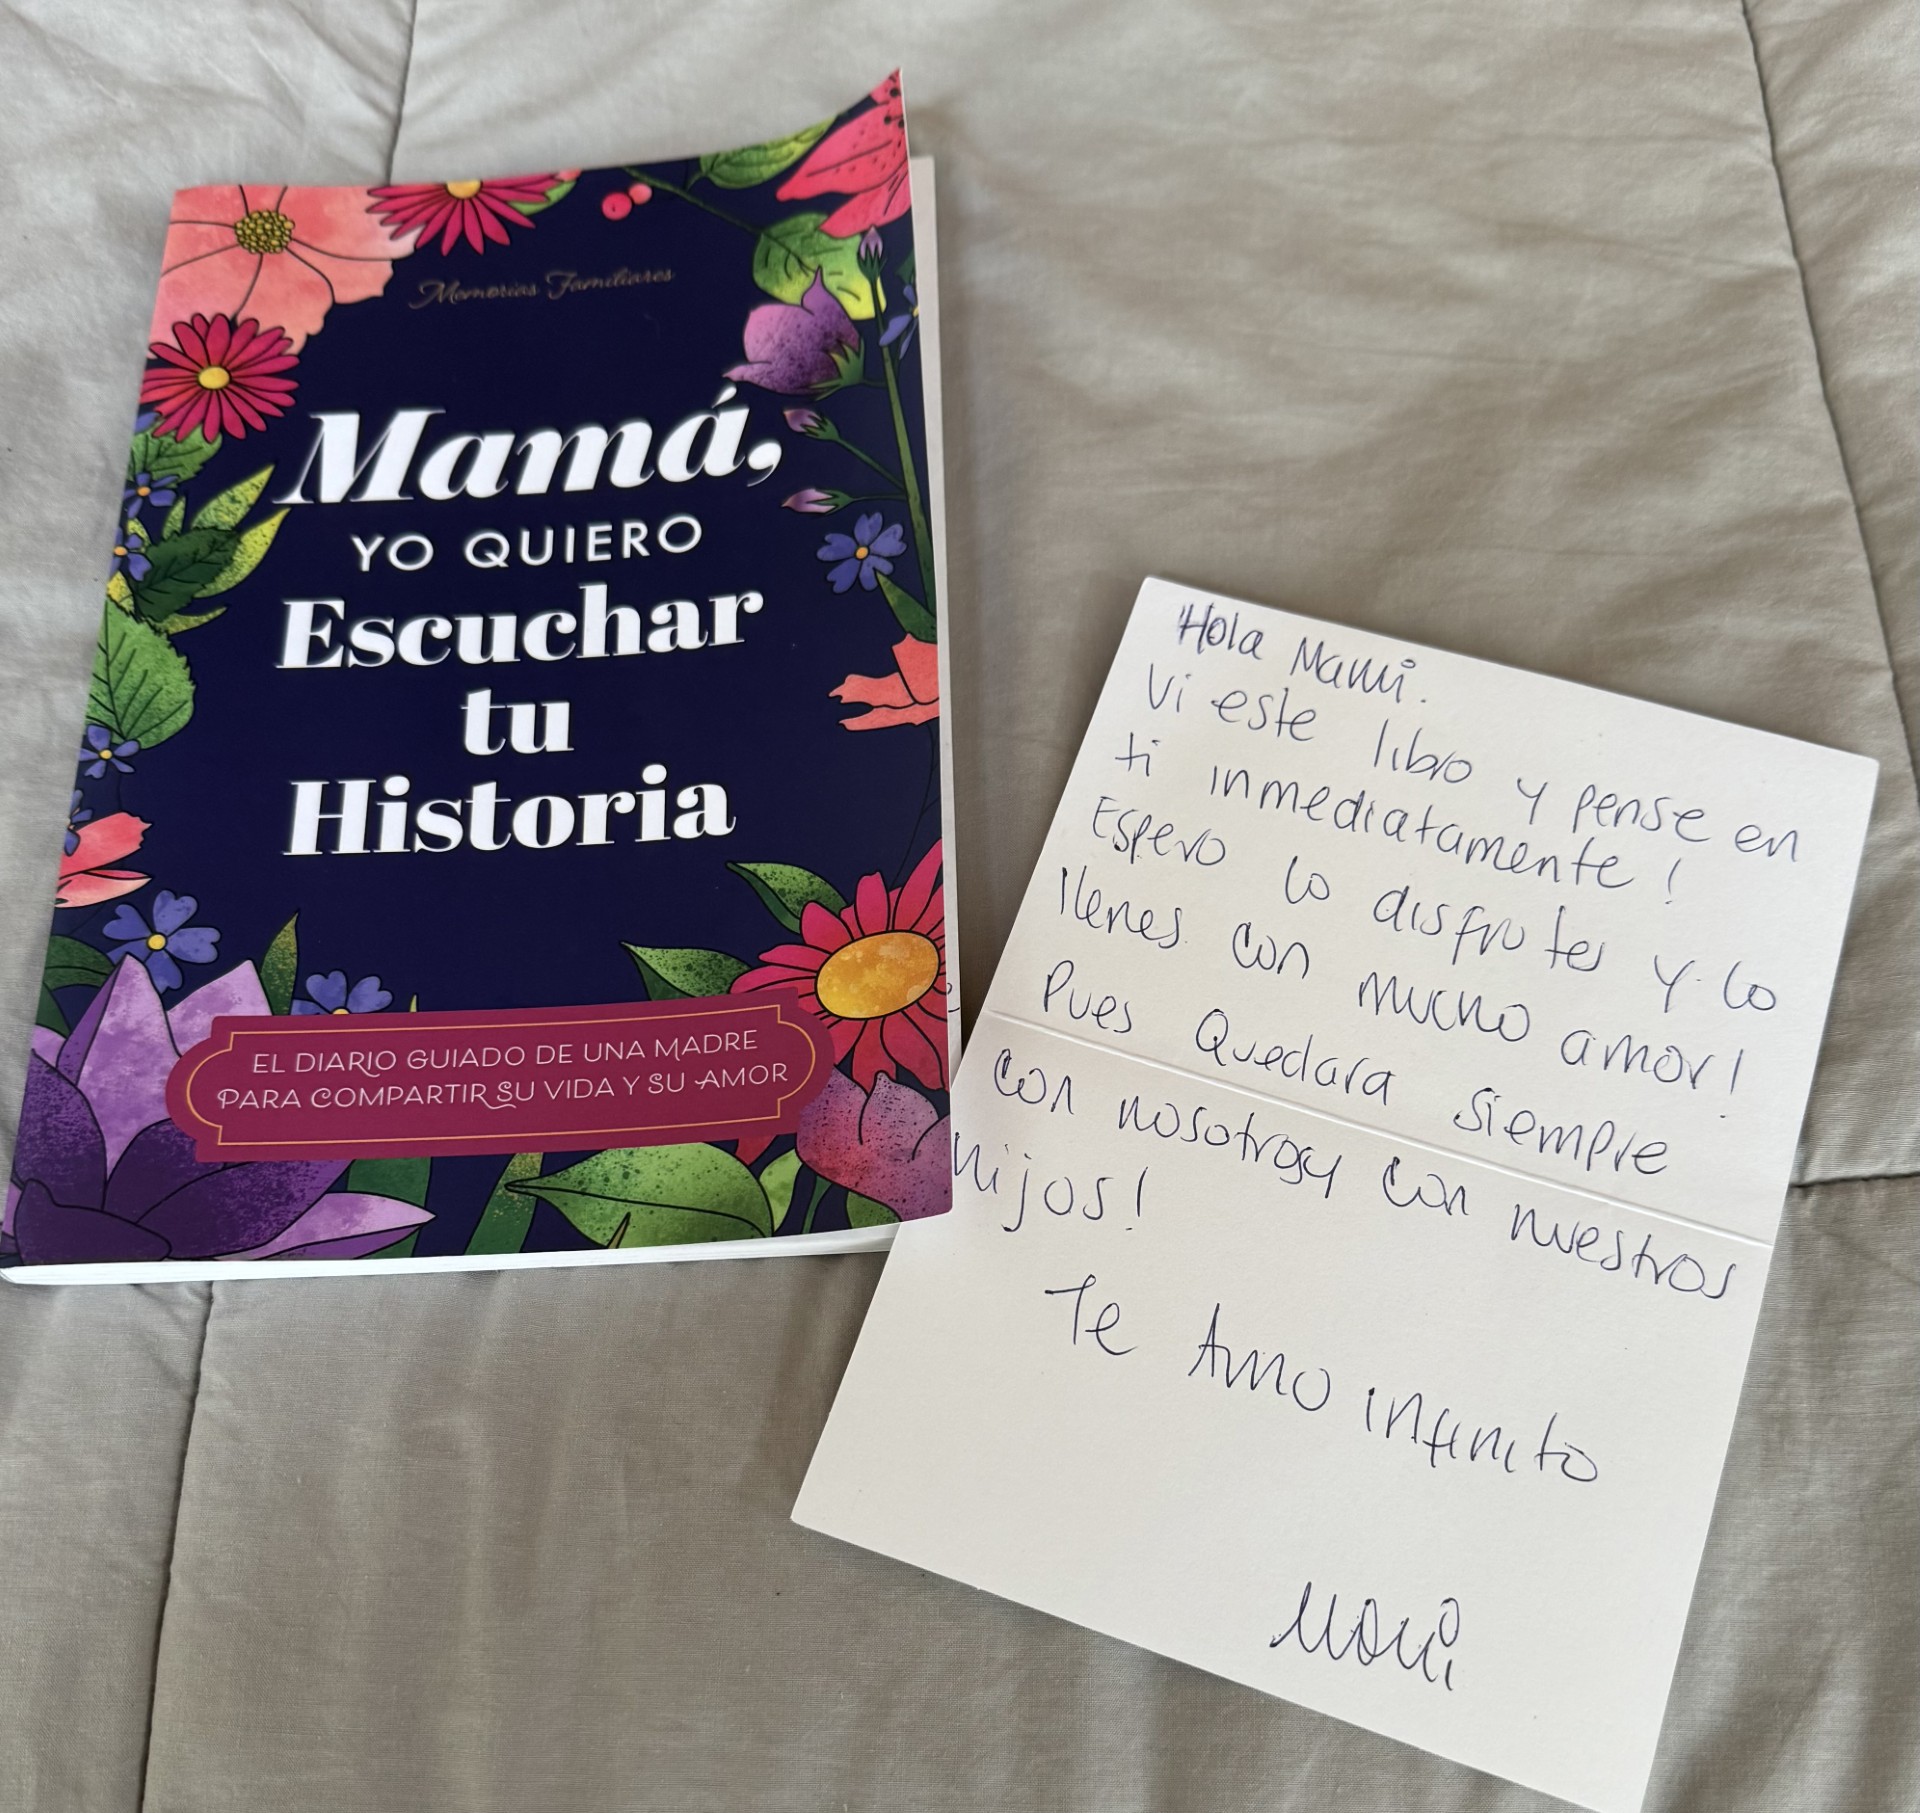 Memorias Familiares
Mamá,
YO QUIERO
Escuchar
tu
Historia
EL DIARIO GUIADO DE UNA MADRE
PARA COMPARTIR SU VIDA Y SU AMOR
Hola Mami.
Vi este libro y pense en
ti inmediatamente!
Espero lo disfrutes y lo
llenes con mucho amor!
Pues Quedara siempre
con nosotros y con nuestros
hijos!
Te Amo infinito